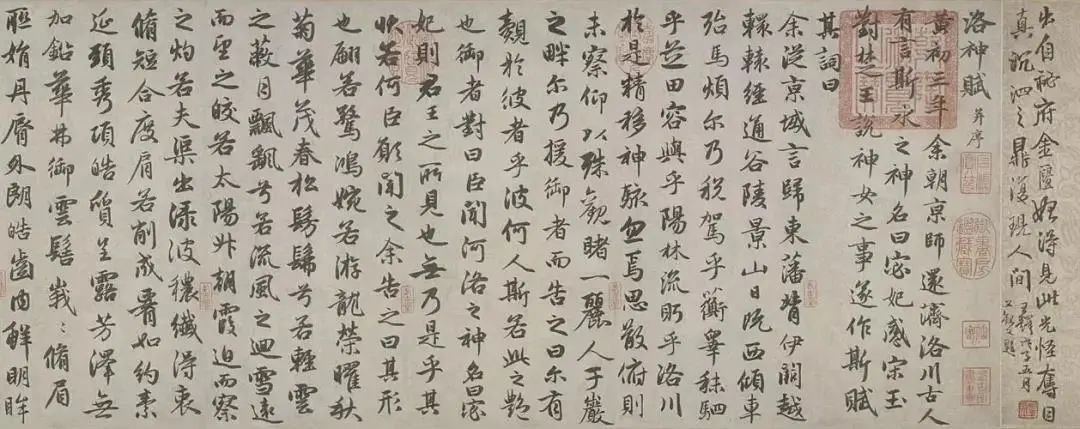 出自秘府金匱始得見此光怪奪目
真沉泗之鼎復現人间
五月
又題
洛神賦 并序
黄初三年余朝京師還濟洛川古人
有言斯水之神名曰宓妃感宋玉
對楚王說神女之事遂作斯賦
其詞曰
余從京域言歸東藩背伊闕越
轘轅經通谷陵景山日既西傾車
殆馬煩尔乃稅駕乎蘅皋秣駟
乎芝田容與乎陽林流眄乎洛川
於是精移神駭忽焉思散俯則
未察仰以殊觀睹一麗人于巖
之畔尔乃援御者而告之曰尔有
覿於彼者乎彼何人斯若此之艷
也御者對曰臣聞河洛之神名曰宓
妃則君王之所見也無乃是乎其
狀若何臣願聞之余告之曰其形
也翩若驚鴻婉若游龍榮曜秋
菊華茂春松髣髴兮若輕雲
之蔽月飄飄兮若流風之迴雪遠
而望之皎若太陽升朝霞迫而察
之灼若夫渠出淥波穠纖得衷
脩短合度肩若削成署如約素
延頸秀項皓質呈露芳澤無
加鉛華弗御雲髻峩〻脩眉
聯娟丹脣外朗皓齒內鮮明眸